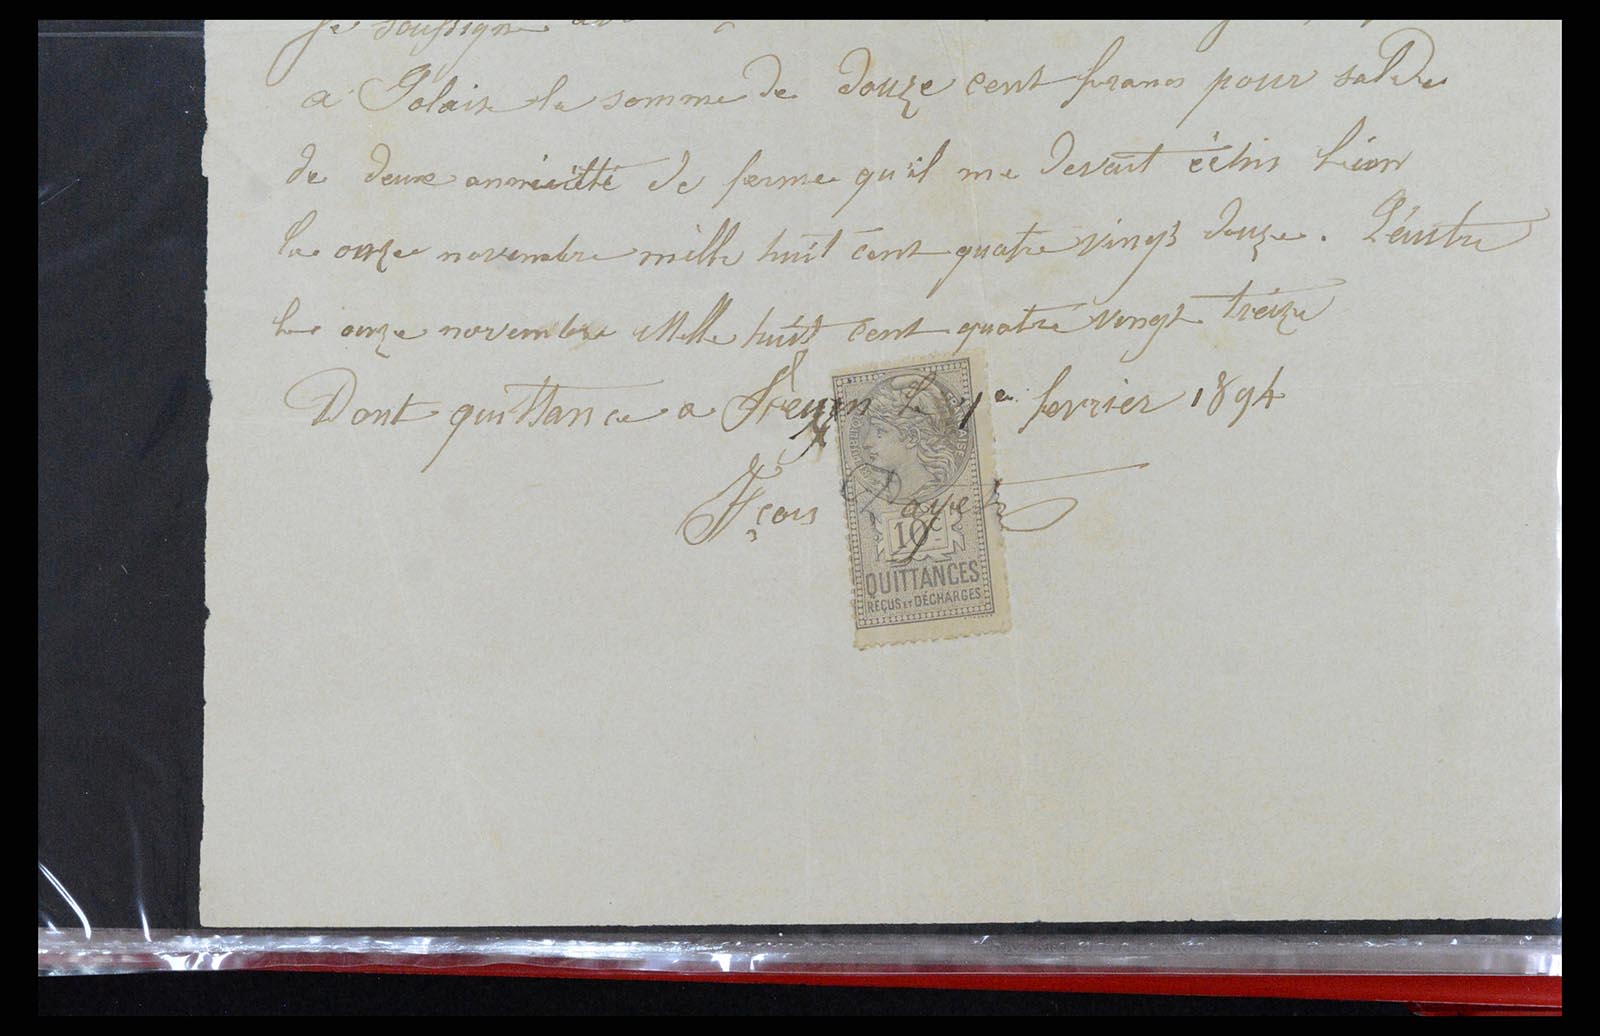 Je soussigne
a Polaire la somme de douze cent francs pour solde
de deux de ferme qu'il me devait échus L'ión
le onze novembre mille huit cent quatre vingt douze. L'eautre
le onze novembre Mille huit cent quatre vingt treize
Dont quittance a le 1e fevrier 1894
Fçois
RÉPUBLIQUE FRANÇAISE
10c
QUITTANCES
REÇUS ET DÉCHARGES